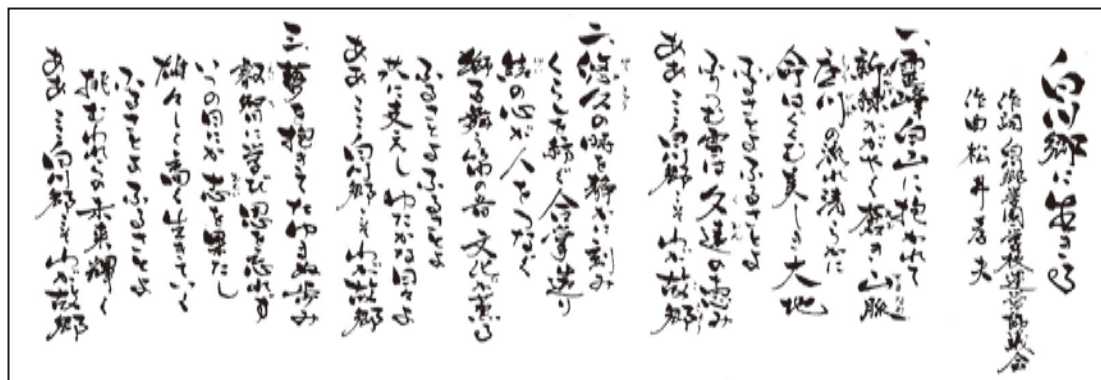 白川郷に生きる
作詞 白川郷学園学校運営協議会
作曲 松井孝夫
一、霊峰白山に抱かれて
新緑かがやく蒼き山脈
庄川の流れ清らかに
命はぐくむ美しき大地
ふるさとよふるさとよ
ふりつむ雪は久遠の恵み
ああここ白川郷こそわが故郷
二、悠久の時を静かに刻み
くらしを紡ぐ合掌造り
結の心が人をつなぐ
獅子舞う笛の音文化が薫る
ふるさとよふるさとよ
共に支えしゆたかな日々よ
ああここ白川郷こそわが故郷
三、夢を抱きてたゆまぬ歩み
叡智に学び恩を忘れず
いつの日にか志を果たし
雄々しく高く生きていく
ふるさとよふるさとよ
挑むわれらの未来輝く
ああここ白川郷こそわが故郷